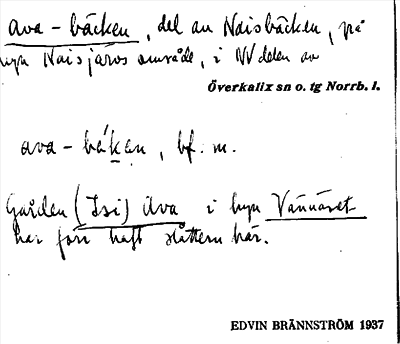 ava-bäcken, del av Naisbäcken, på
byn Naisjärvs område, i NV delen av
Överkalix sn o. tg Norrb. l.
ava-bá̱kan, bf. m.
Gården (Isi) Ava i byn Vännäset
har förr haft slåttern här.
EDVIN BRÄNNSTRÖM 1937